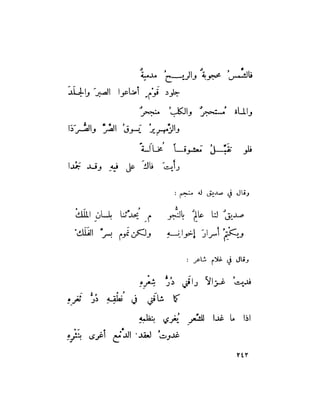 فالشمسُ محجوبةٌ والريـــحُ مدميةٌ
جلودَ قَوْمٍ أضاعوا الصبرَ والجَلَدَا
والمـاءُ مُستحجرٌ والكلبُ منجحرٌ
والزمْهريرُ يَسوقُ الضُّرَّ والصُّرَدَا
فلو تقَبَّـلُ مَعشوقـاً مُخـالَسـةً
رأيتَ فاكَ على فيهِ وقـد جَمَدا
وقال في صديق له منجم :
صديقٌ لنا عالمٌ بالنُّجُو مِ يُحدِّثنا بلسـانِ المَلَكْ
ويكتمُ أسرارَ إخوانـهِ ولكن نَمومٌ بسرِّ الفَلَكْ
وقال في غلام شاعر :
فديتُ غـزالاً راقَني دُرُّ شِعْرِهِ
كما شاقَني في نُطْقِـهِ دُرُّ ثَغرِهِ
اذا ما غدا للشعرِ يُغري بنظمِهِ
غدوتُ لعقدِ الدَّمْعِ أغرى بنَثْرِهِ
٢٤٢